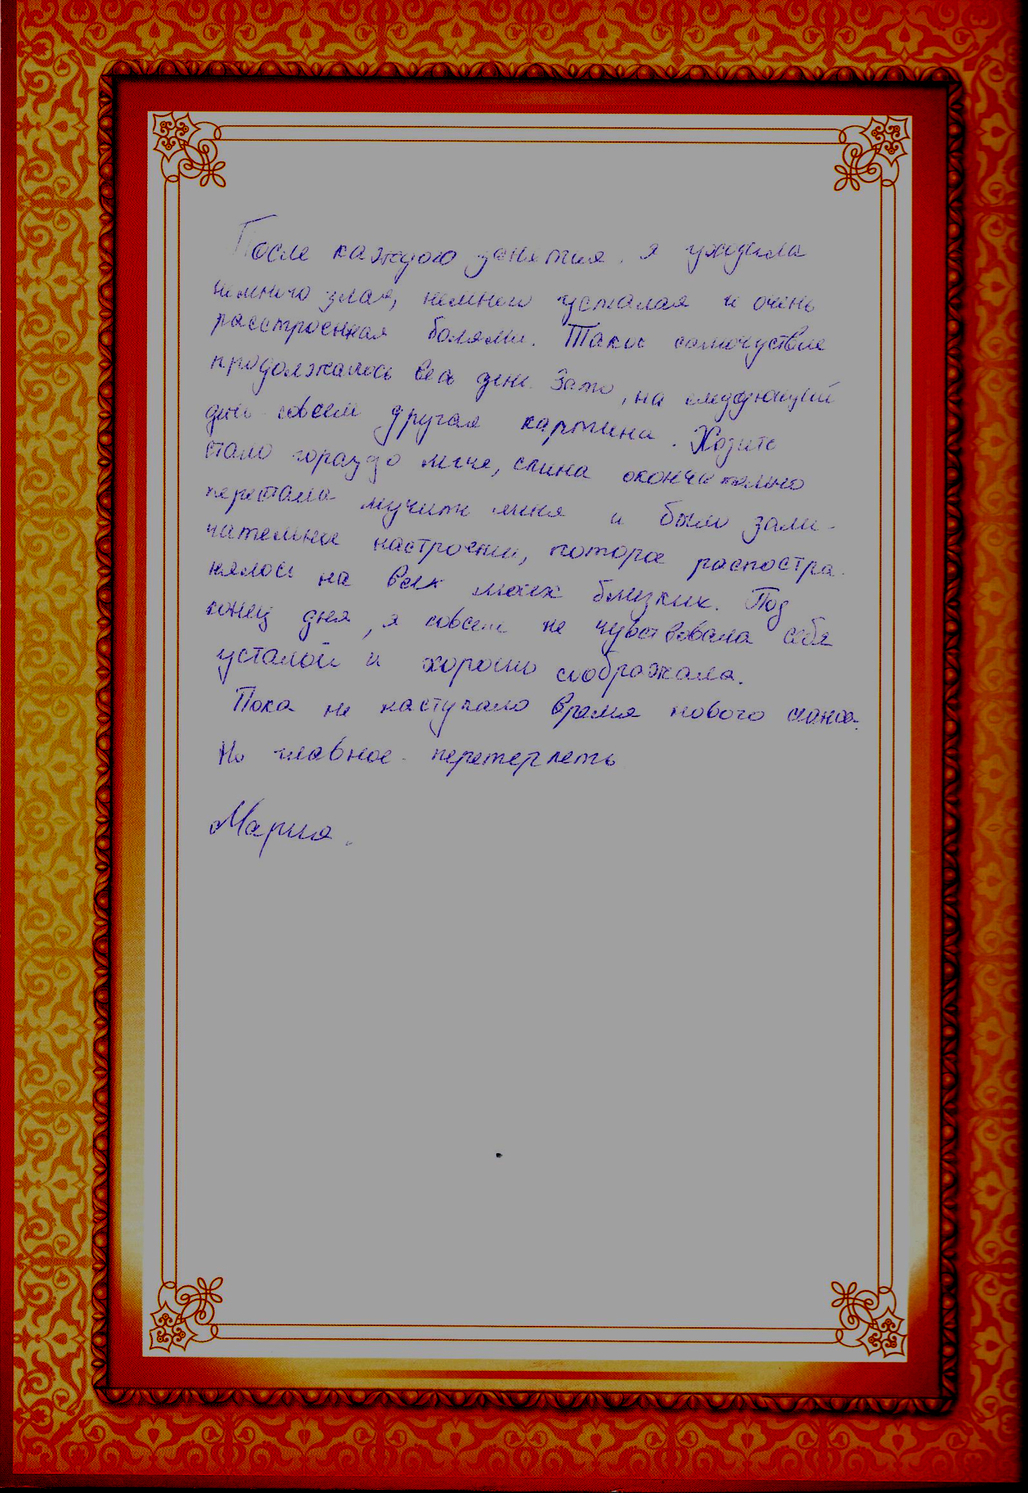 После каждого занятия я уходила
немного злая, немного усталая и очень
расстроенная болями. Такое самочуствие
продолжалось весь день. Зато, на следующий
день совсем другая картина. Ходить
стало гораздо легче, спина окончательно
перестала мучить меня и было заме-
чательное настроение, которое распостра-
нялось на всех моих близких. Под
конец дня, я совсем не чувствовала себя
усталой и хорошо соображала.
Пока не наступало время нового сеанса.
Но главное - перетерпеть
Мария.